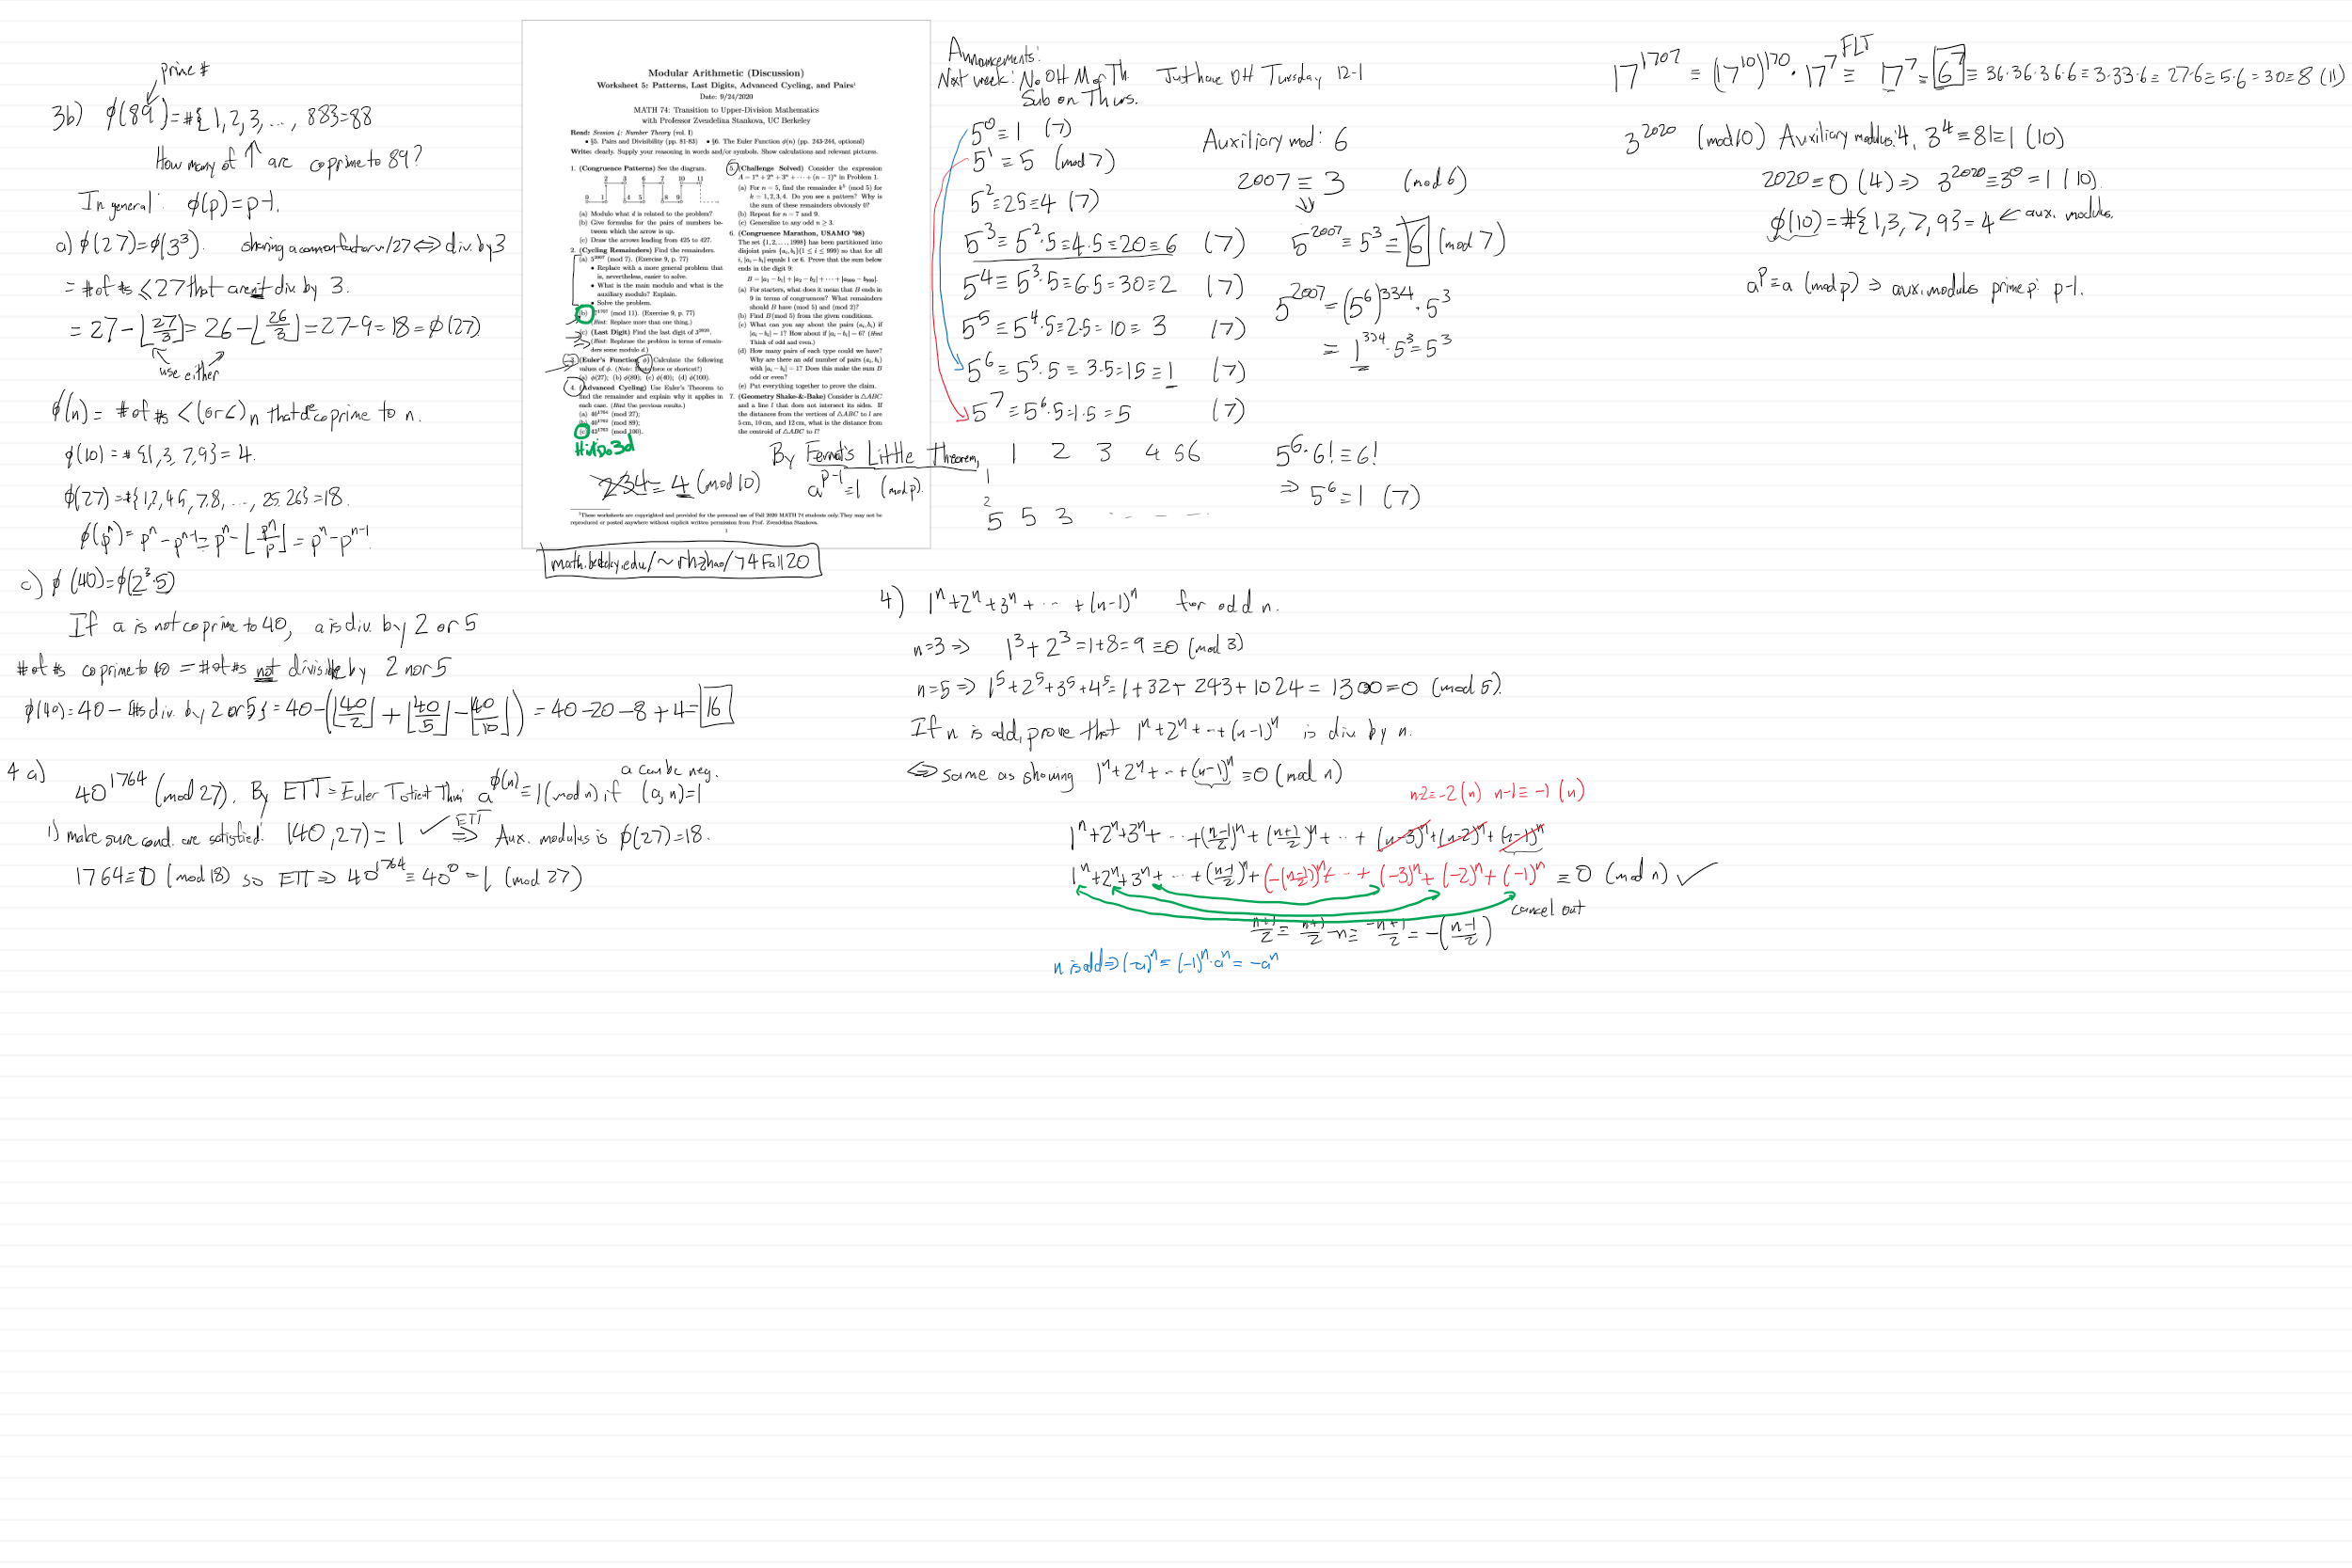 prime #
3b) ϕ(89)=#{1,2,3,..., 88}=88
How many of ↑ are coprime to 89?
In general: ϕ(p)=p-1.
a) ϕ(27)=ϕ(3³). sharing a common factor w/27 ⇔ div. by 3
= # of #s ≤ 27 that aren't div by 3.
= 27-⌊27/3⌋= 26-⌊26/3⌋=27-9=18=ϕ(27)
use either
ϕ(n)= # of #s <(or ≤) n that're coprime to n.
ϕ(10)=#{1,3,7,9}=4.
ϕ(27)=#{1,2,4,5,7,8,...,25,26}=18.
ϕ(pⁿ)=pⁿ-pⁿ⁻¹=pⁿ-⌊pⁿ/p⌋=pⁿ-pⁿ⁻¹
c) ϕ(40)=ϕ(2³·5)
If a is not coprime to 40, a is div. by 2 or 5
# of #s coprime to 40 = # of #s not divisible by 2 nor 5
ϕ(40)=40-{#s div. by 2 or 5}=40-(⌊40/2⌋+⌊40/5⌋-⌊40/10⌋)=40-20-8+4=16
4 a)
40¹⁷⁶⁴ (mod 27). By ETT=Euler Totient Thm: a^ϕ(n)≡1(mod n) if (a,n)=1
a can be neg.
1) make sure cond. are satisfied: (40,27)=1 ✓ ⇒ ETT Aux. modulus is ϕ(27)=18.
1764≡0 (mod 18) so ETT⇒40¹⁷⁶⁴≡40⁰=1 (mod 27)
Modular Arithmetic (Discussion)
Worksheet 5: Patterns, Last Digits, Advanced Cycling, and Pairs¹
Date: 9/24/2020
MATH 74: Transition to Upper-Division Mathematics
with Professor Zvezdelina Stankova, UC Berkeley
Read: Session 4: Number Theory (vol. I)
• §5. Pairs and Divisibility (pp. 81-83) • §6. The Euler Function ϕ(n) (pp. 243-244, optional)
Write: clearly. Supply your reasoning in words and/or symbols. Show calculations and relevant pictures.
1. (Congruence Patterns) See the diagram.
2 3 6 7 10 11
0 1 4 5 8 9
(a) Modulo what d is related to the problem?
(b) Give formulas for the pairs of numbers be-
tween which the arrow is up.
(c) Draw the arrows leading from 425 to 427.
2. (Cycling Remainders) Find the remainders.
(a) 5²⁰⁰⁷ (mod 7). (Exercise 9, p. 77)
• Replace with a more general problem that
is, nevertheless, easier to solve.
• What is the main modulo and what is the
auxiliary modulo? Explain.
• Solve the problem.
(b) 17¹⁷⁰⁷ (mod 11). (Exercise 9, p. 77)
(Hint: Replace more than one thing.)
(c) (Last Digit) Find the last digit of 3²⁰²⁰.
(Hint: Rephrase the problem in terms of remain-
ders some modulo d.)
3. (Euler's Function ϕ) Calculate the following
values of ϕ. (Note: Brute force or shortcut?)
(a) ϕ(27); (b) ϕ(89); (c) ϕ(40); (d) ϕ(100).
4. (Advanced Cycling) Use Euler's Theorem to
find the remainder and explain why it applies in
each case. (Hint Use previous results.)
(a) 40¹⁷⁶⁴ (mod 27);
(b) 40¹⁷⁶⁴ (mod 89);
(c) 43¹⁷⁶³ (mod 100).
Hint: Do 3d
5. (Challenge Solved) Consider the expression
A = 1ⁿ + 2ⁿ + 3ⁿ + ··· + (n − 1)ⁿ in Problem 1.
(a) For n = 5, find the remainder k⁵ (mod 5) for
k = 1, 2, 3, 4. Do you see a pattern? Why is
the sum of these remainders obviously 0?
(b) Repeat for n = 7 and 9.
(c) Generalize to any odd n ≥ 3.
6. (Congruence Marathon, USAMO '98)
The set {1, 2, ..., 1998} has been partitioned into
disjoint pairs {aᵢ, bᵢ}(1 ≤ i ≤ 999) so that for all
i, |aᵢ − bᵢ| equals 1 or 6. Prove that the sum below
ends in the digit 9:
B = |a₁ − b₁| + |a₂ − b₂| + ··· + |a₉₉₉ − b₉₉₉|.
(a) For starters, what does it mean that B ends in
9 in terms of congruences? What remainders
should B have (mod 5) and (mod 2)?
(b) Find B(mod 5) from the given conditions.
(c) What can you say about the pairs (aᵢ, bᵢ) if
|aᵢ − bᵢ| = 1? How about if |aᵢ − bᵢ| = 6? (Hint
Think of odd and even.)
(d) How many pairs of each type could we have?
Why are there an odd number of pairs (aᵢ, bᵢ)
with |aᵢ − bᵢ| = 1? Does this make the sum B
odd or even?
(e) Put everything together to prove the claim.
7. (Geometry Shake-&-Bake) Consider is △ABC
and a line l that does not intersect its sides. If
the distances from the vertices of △ABC to l are
5 cm, 10 cm, and 12 cm, what is the distance from
the centroid of △ABC to l?
234≡4 (mod 10)
¹These worksheets are copyrighted and provided for the personal use of Fall 2020 MATH 74 students only. They may not be
reproduced or posted anywhere without explicit written permission from Prof. Zvezdelina Stankova.
1
math.berkeley.edu/~rhzhao/74Fall20
Announcements:
Next week: No OH M or Th. Just have OH Tuesday 12-1
Sub on Thurs.
5⁰≡1 (7)
5¹≡5 (mod 7)
5²≡25≡4 (7)
5³≡5²·5≡4·5≡20≡6 (7)
5⁴≡5³·5≡6·5=30≡2 (7)
5⁵≡5⁴·5≡2·5=10≡3 (7)
5⁶≡5⁵·5≡3·5=15≡1 (7)
5⁷≡5⁶·5≡1·5=5 (7)
Auxiliary mod: 6
2007≡3 (mod 6)
⇓
5²⁰⁰⁷≡5³≡6 (mod 7)
5²⁰⁰⁷=(5⁶)³³⁴·5³
≡1³³⁴·5³=5³
By Fermat's Little Theorem,
aᵖ⁻¹≡1 (mod p).
1 2 3 4 5 6
1
2
5 5 3 ...
5⁶·6!≡6!
⇒ 5⁶≡1 (7)
17¹⁷⁰⁷≡(17¹⁰)¹⁷⁰·17⁷ ≡ FLT 17⁷≡6⁷≡36·36·36·6≡3·3·3·6≡27·6≡5·6=30≡8 (11)
3²⁰²⁰ (mod 10) Auxiliary modulus: 4, 3⁴=81≡1 (10)
2020≡0 (4)⇒3²⁰²⁰≡3⁰=1 (10).
ϕ(10)=#{1,3,7,9}=4 ← aux. modulus.
aᵖ≡a (mod p) ⇒ aux. modulus prime p: p-1.
4) 1ⁿ+2ⁿ+3ⁿ+...+(n-1)ⁿ for odd n.
n=3⇒ 1³+2³=1+8=9≡0 (mod 3)
n=5⇒1⁵+2⁵+3⁵+4⁵=1+32+243+1024=1300≡0 (mod 5).
If n is odd, prove that 1ⁿ+2ⁿ+...+(n-1)ⁿ is div by n.
⇔ same as showing 1ⁿ+2ⁿ+...+(n-1)ⁿ≡0 (mod n)
n-2≡-2 (n) n-1≡-1 (n)
1ⁿ+2ⁿ+3ⁿ+...+((n-1)/2)ⁿ+((n+1)/2)ⁿ+...+(n-3)ⁿ+(n-2)ⁿ+(n-1)ⁿ
1ⁿ+2ⁿ+3ⁿ+...+((n-1)/2)ⁿ+(-((n-1)/2))ⁿ+...+(-3)ⁿ+(-2)ⁿ+(-1)ⁿ≡0 (mod n) ✓
cancel out
(n+1)/2≡(n+1)/2-n≡(-n+1)/2=-((n-1)/2)
n is odd⇒(-a)ⁿ=(-1)ⁿ·aⁿ=-aⁿ